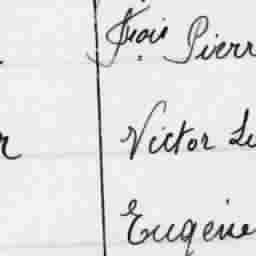 Frois Pierr
Victor Lu
Eugène